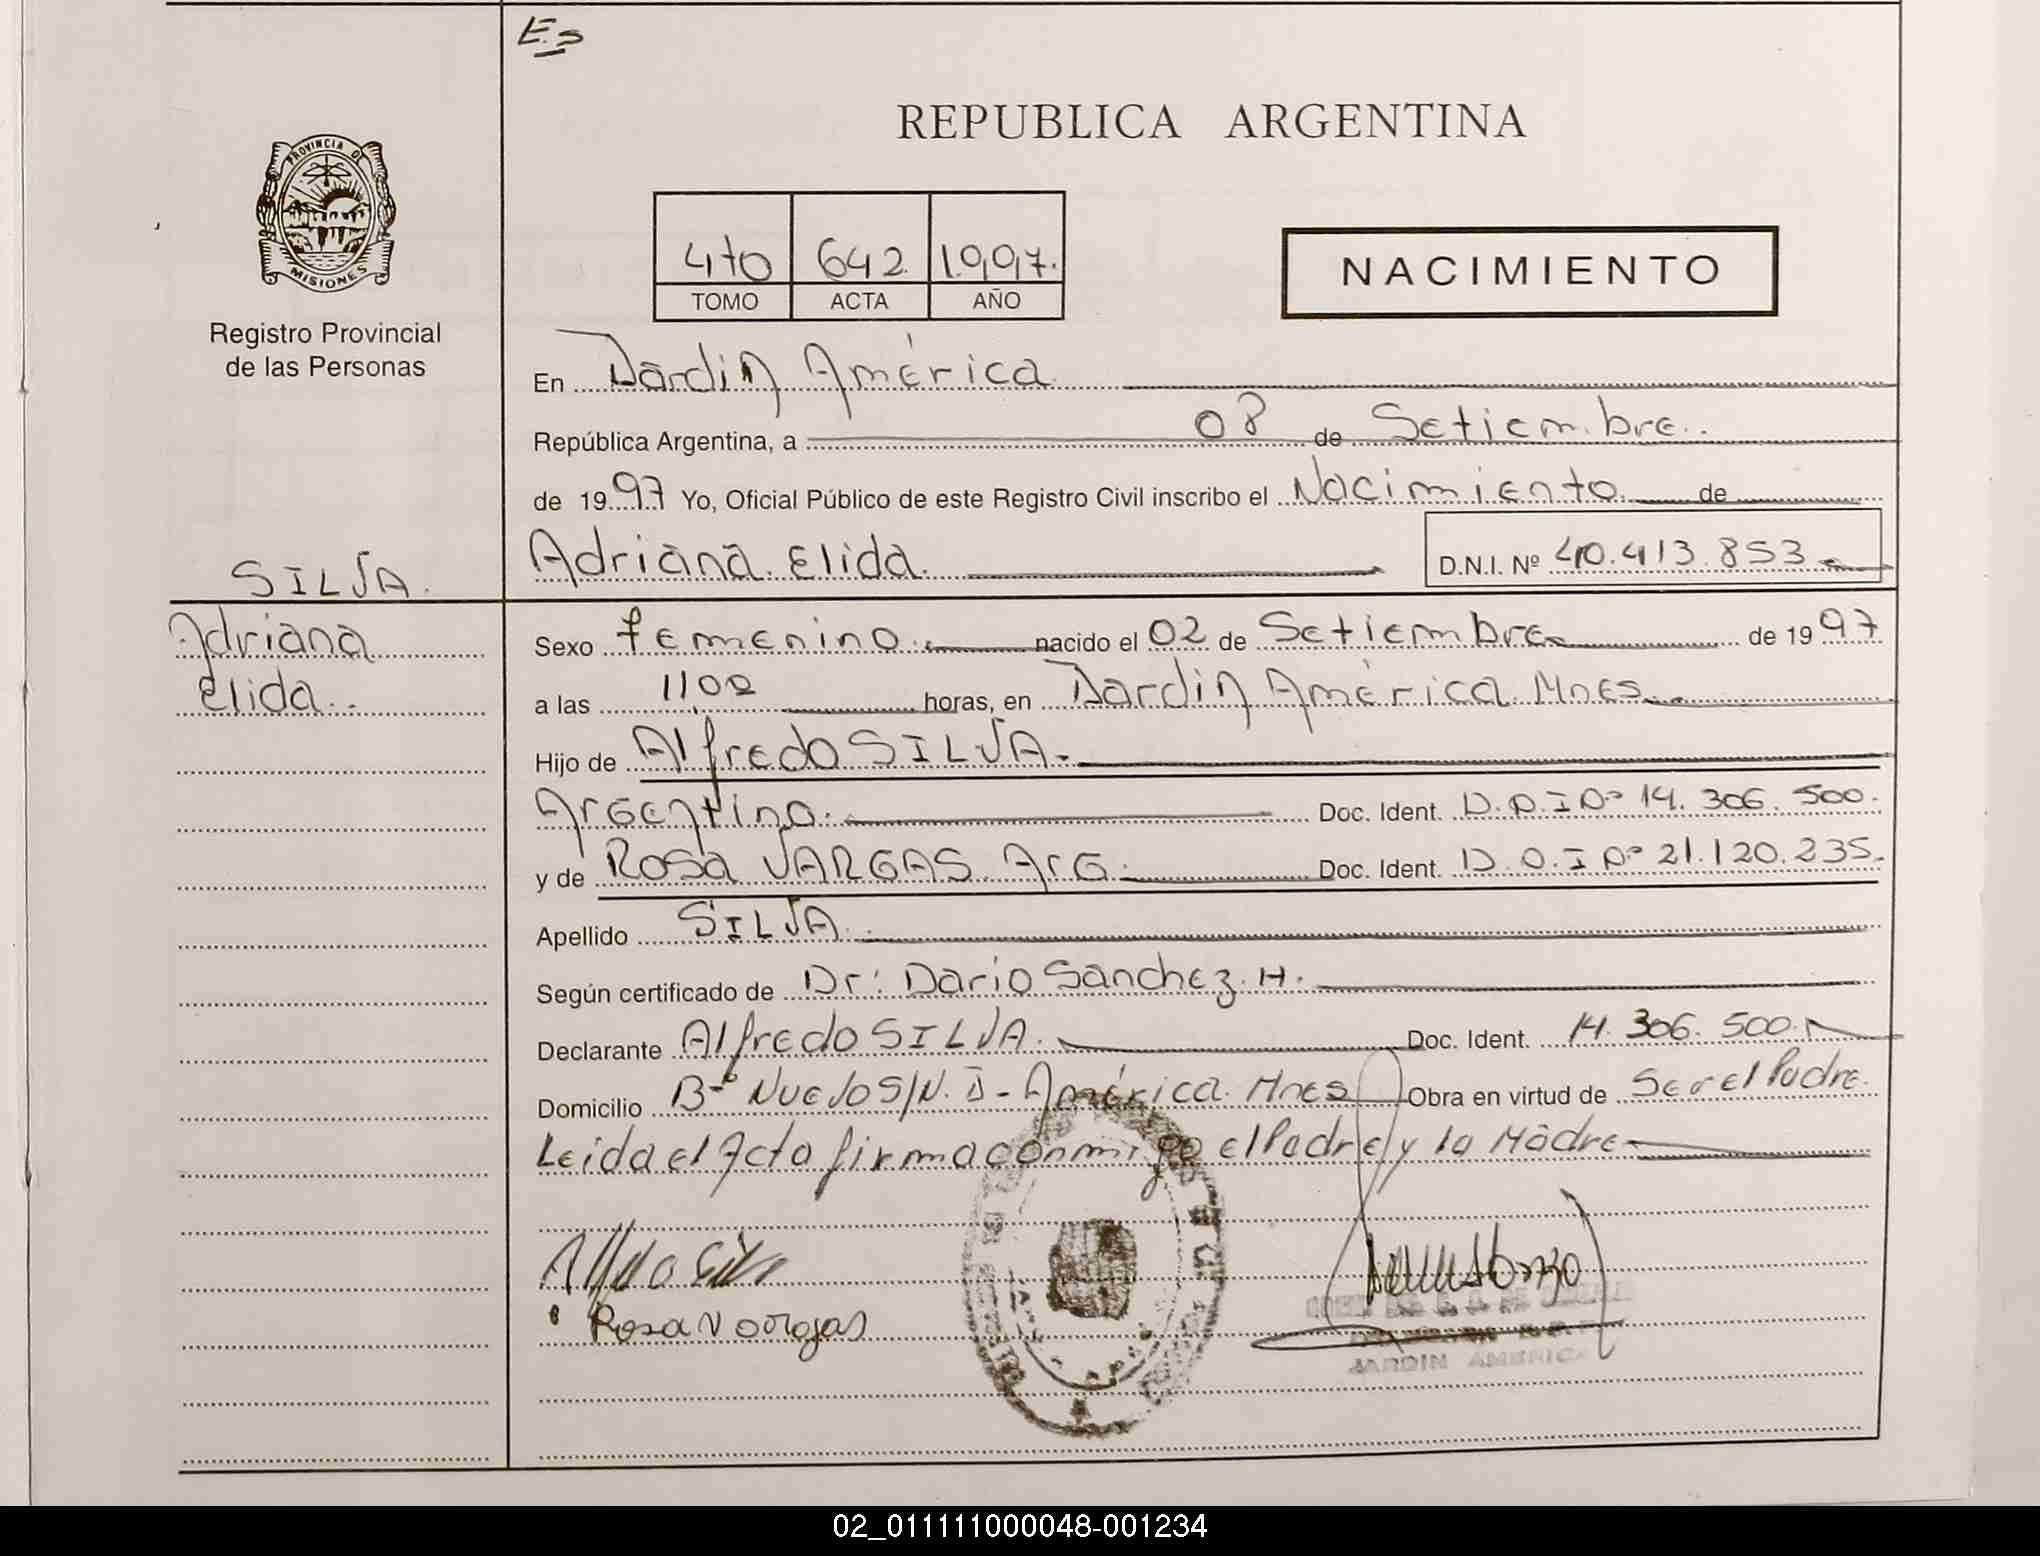 Es
REPUBLICA ARGENTINA
PROVINCIA DE
MISIONES
Registro Provincial
de las Personas
4to 642. 1.997.
TOMO ACTA AÑO
NACIMIENTO
En Jardin América
República Argentina, a 08 de Setiembre.
de 1997 Yo, Oficial Público de este Registro Civil inscribo el Nacimiento de
Adriana Elida. D.N.I. Nº 40.413.853
SILVA.
Adriana
Elida.
Sexo femenino. nacido el 02 de Setiembre de 1997
a las 1100 horas, en Jardin América. Mnes.
Hijo de Alfredo SILVA.
Argentino. Doc. Ident. D.N.I Nº 14.306.500.
y de Rosa VARGAS Arg. Doc. Ident. D.N.I Nº 21.120.235.
Apellido SILVA.
Según certificado de Dr: Dario Sanchez. H.
Declarante Alfredo SILVA. Doc. Ident. 14.306.500.
Domicilio Bº Nuevo S/N. J - América. Mnes Obra en virtud de Ser el Padre.
Leida el Acta firma conmigo el Padre y la Madre
Rosa Vargas
JARDIN AMERICA
02_011111000048-001234